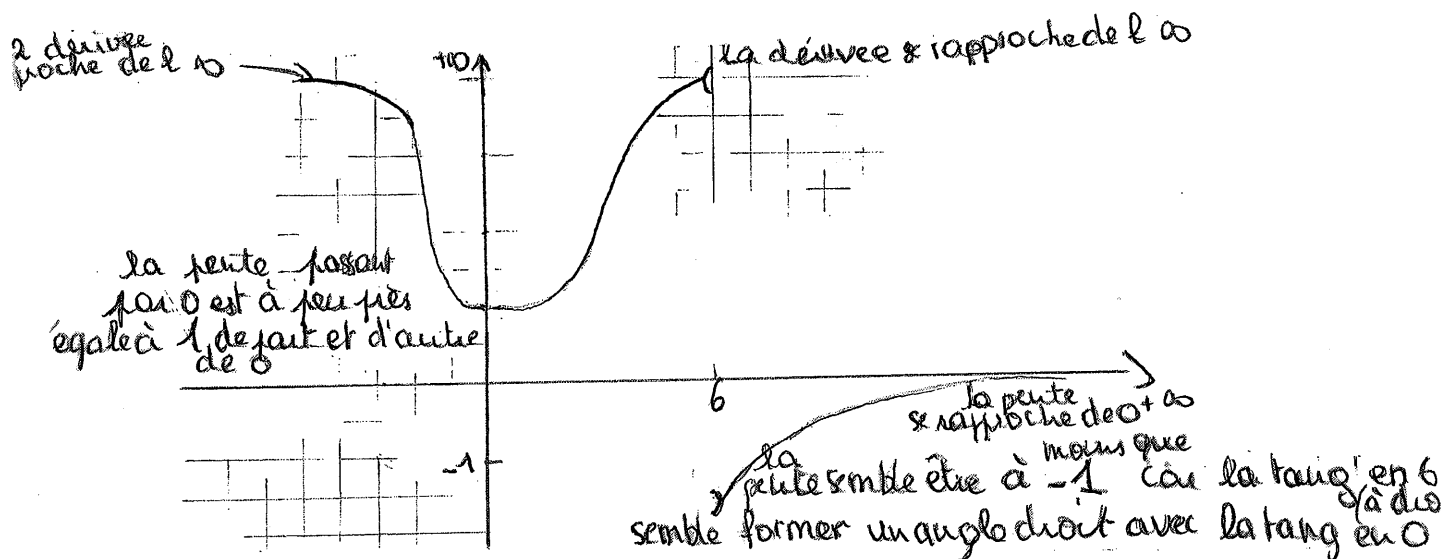 2 dérivée
proche de l ∞
+∞
la dérivee se rapproche de l ∞
la pente passant
par 0 est à peu près
égale à 1 de part et d'autre
de 0
6
la pente
se rapproche de 0⁺ ∞
-1
la moins que
pente semble être à -1 car la tang' en 6
(à dro
semble former un angle droit avec la tang en 0